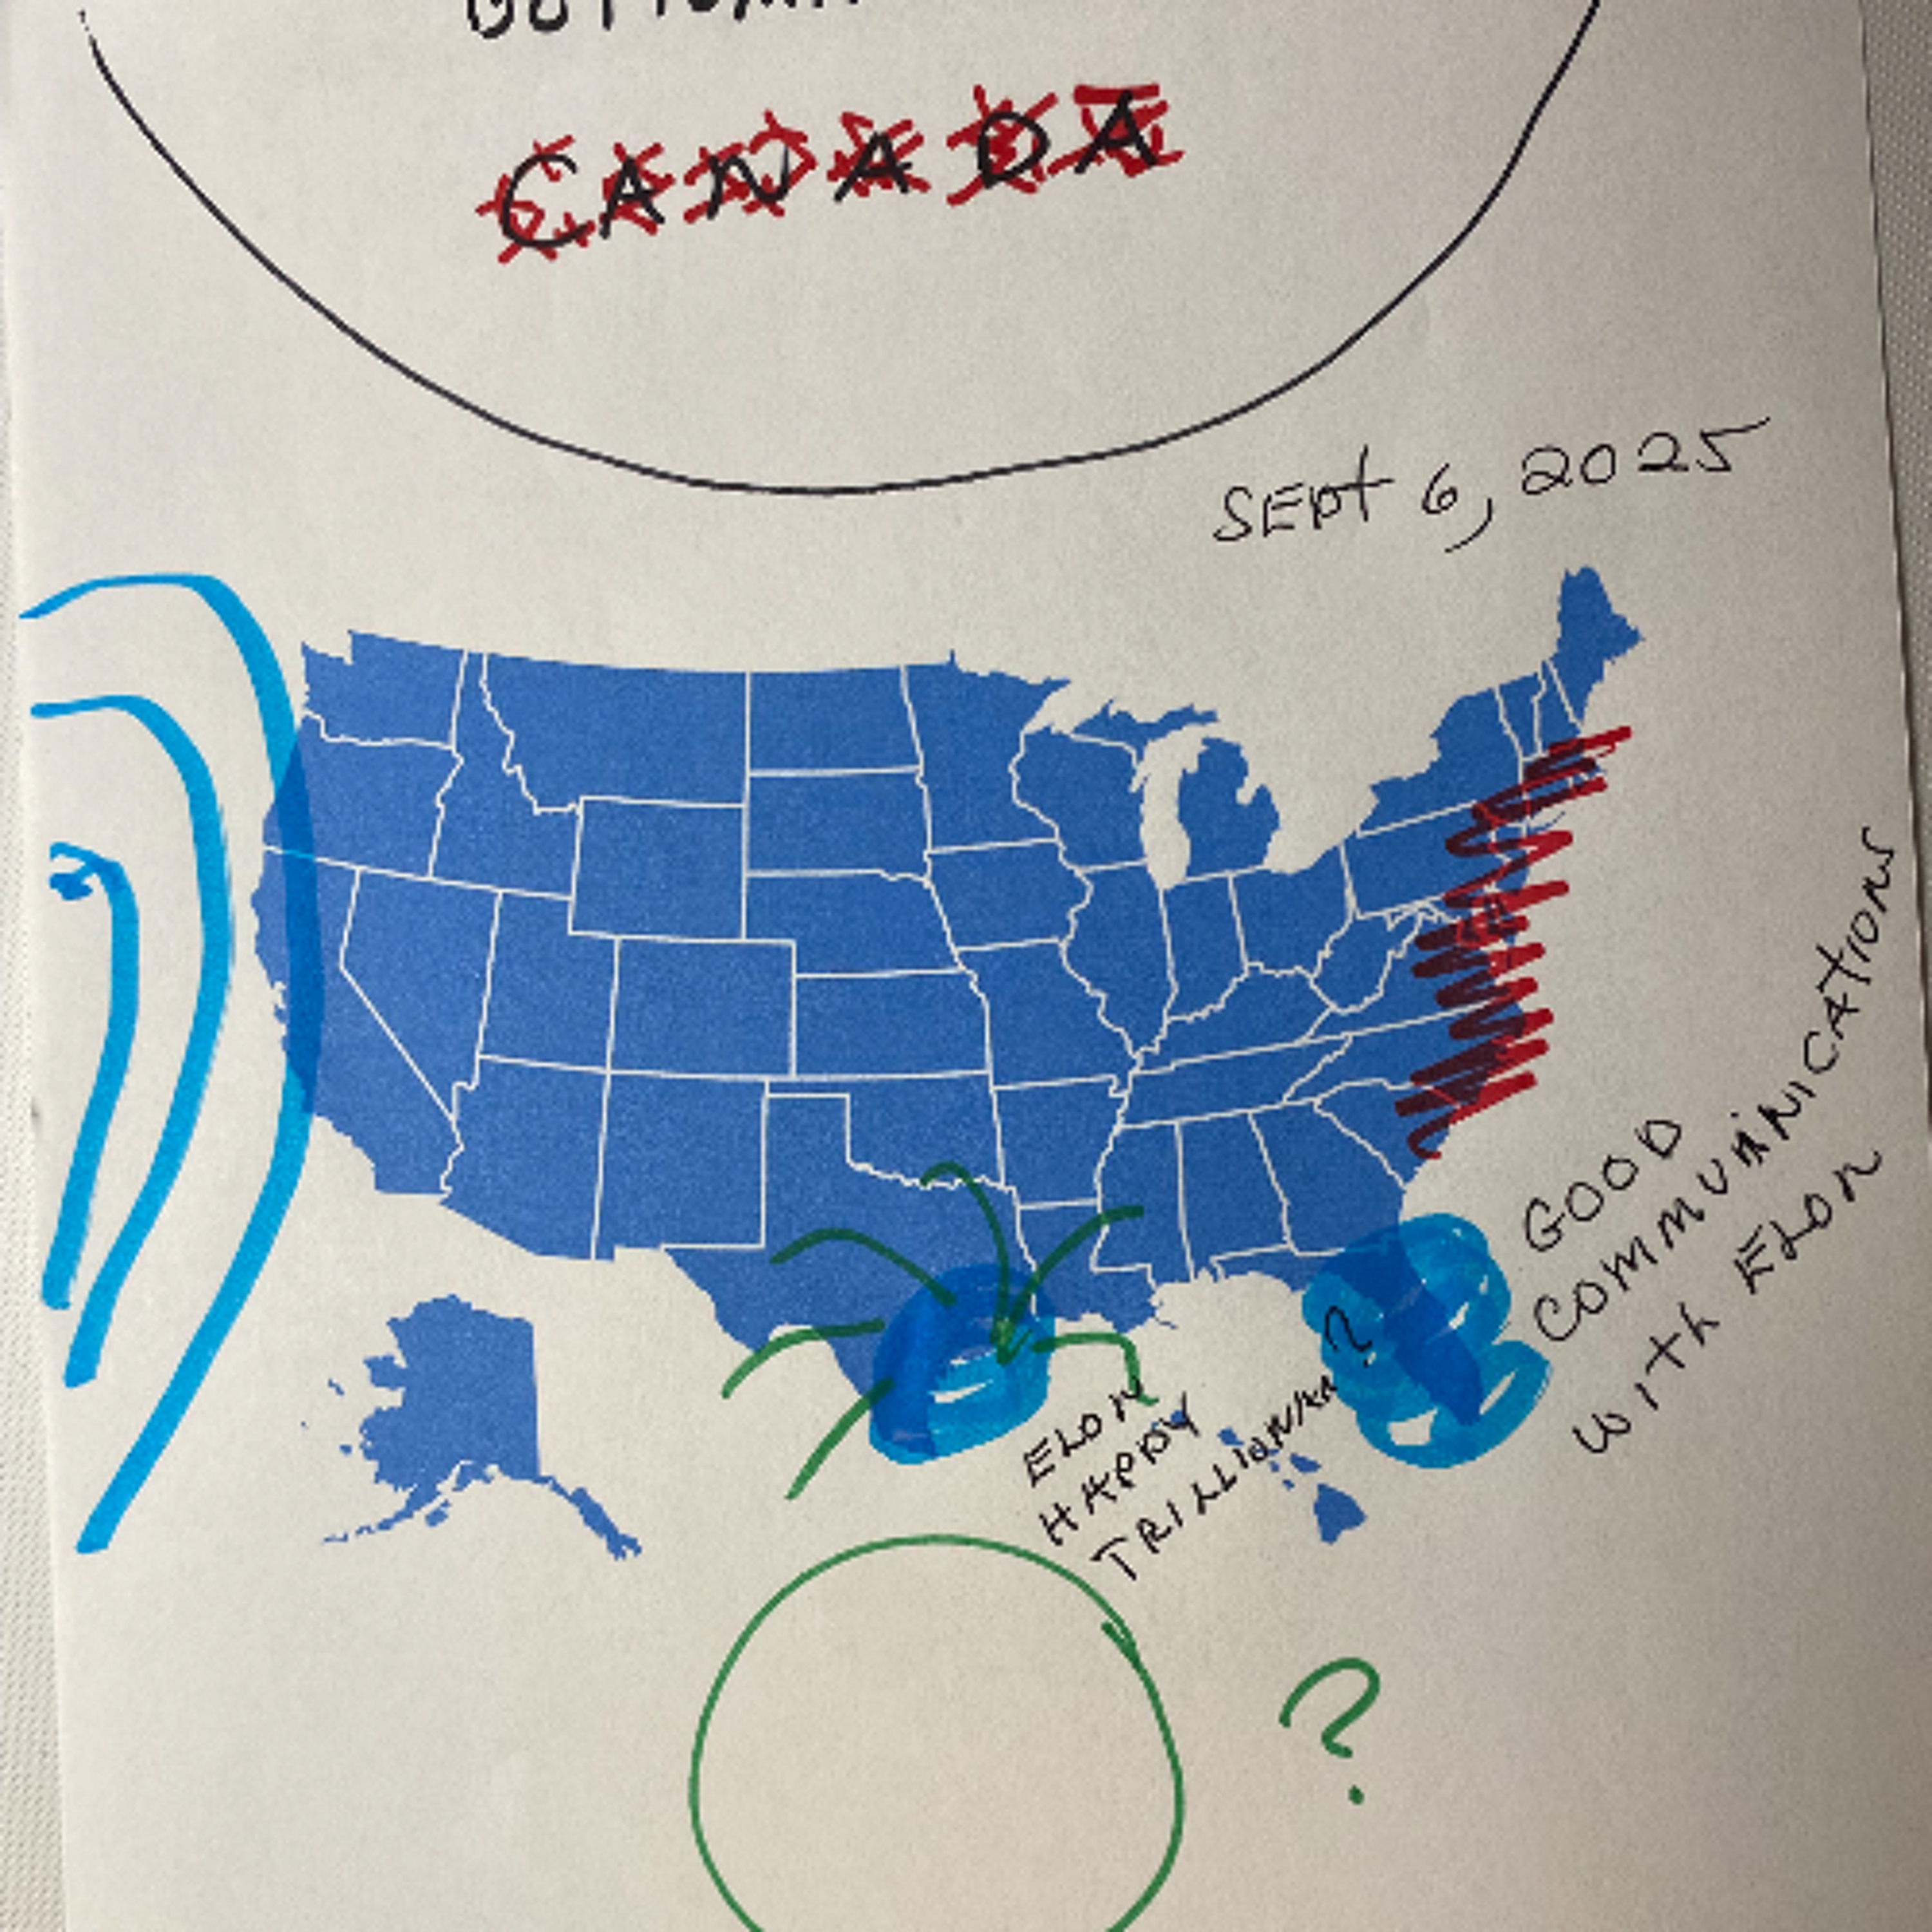 CANADA
SEPT 6, 2025
GOOD
COMMUNICATIONS
WITH ELON
ELON
HAPPY
TRILLIONAR?
?